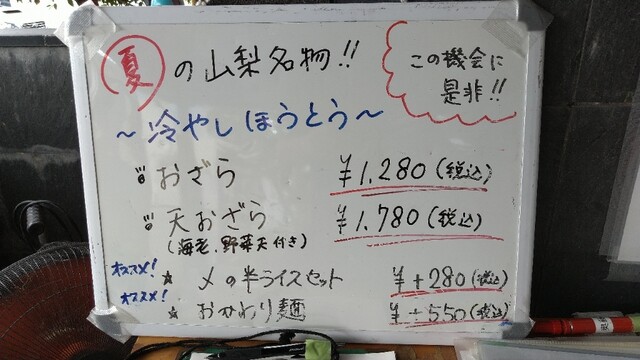 夏の山梨名物!!
この機会に
是非!!
～冷やしほうとう～
おざら ¥1,280(税込)
天おざら ¥1,780(税込)
(海老、野菜天付き)
オススメ! ☆ 〆の半ライスセット ¥+280(税込)
オススメ! ☆ おかわり麺 ¥+550(税込)